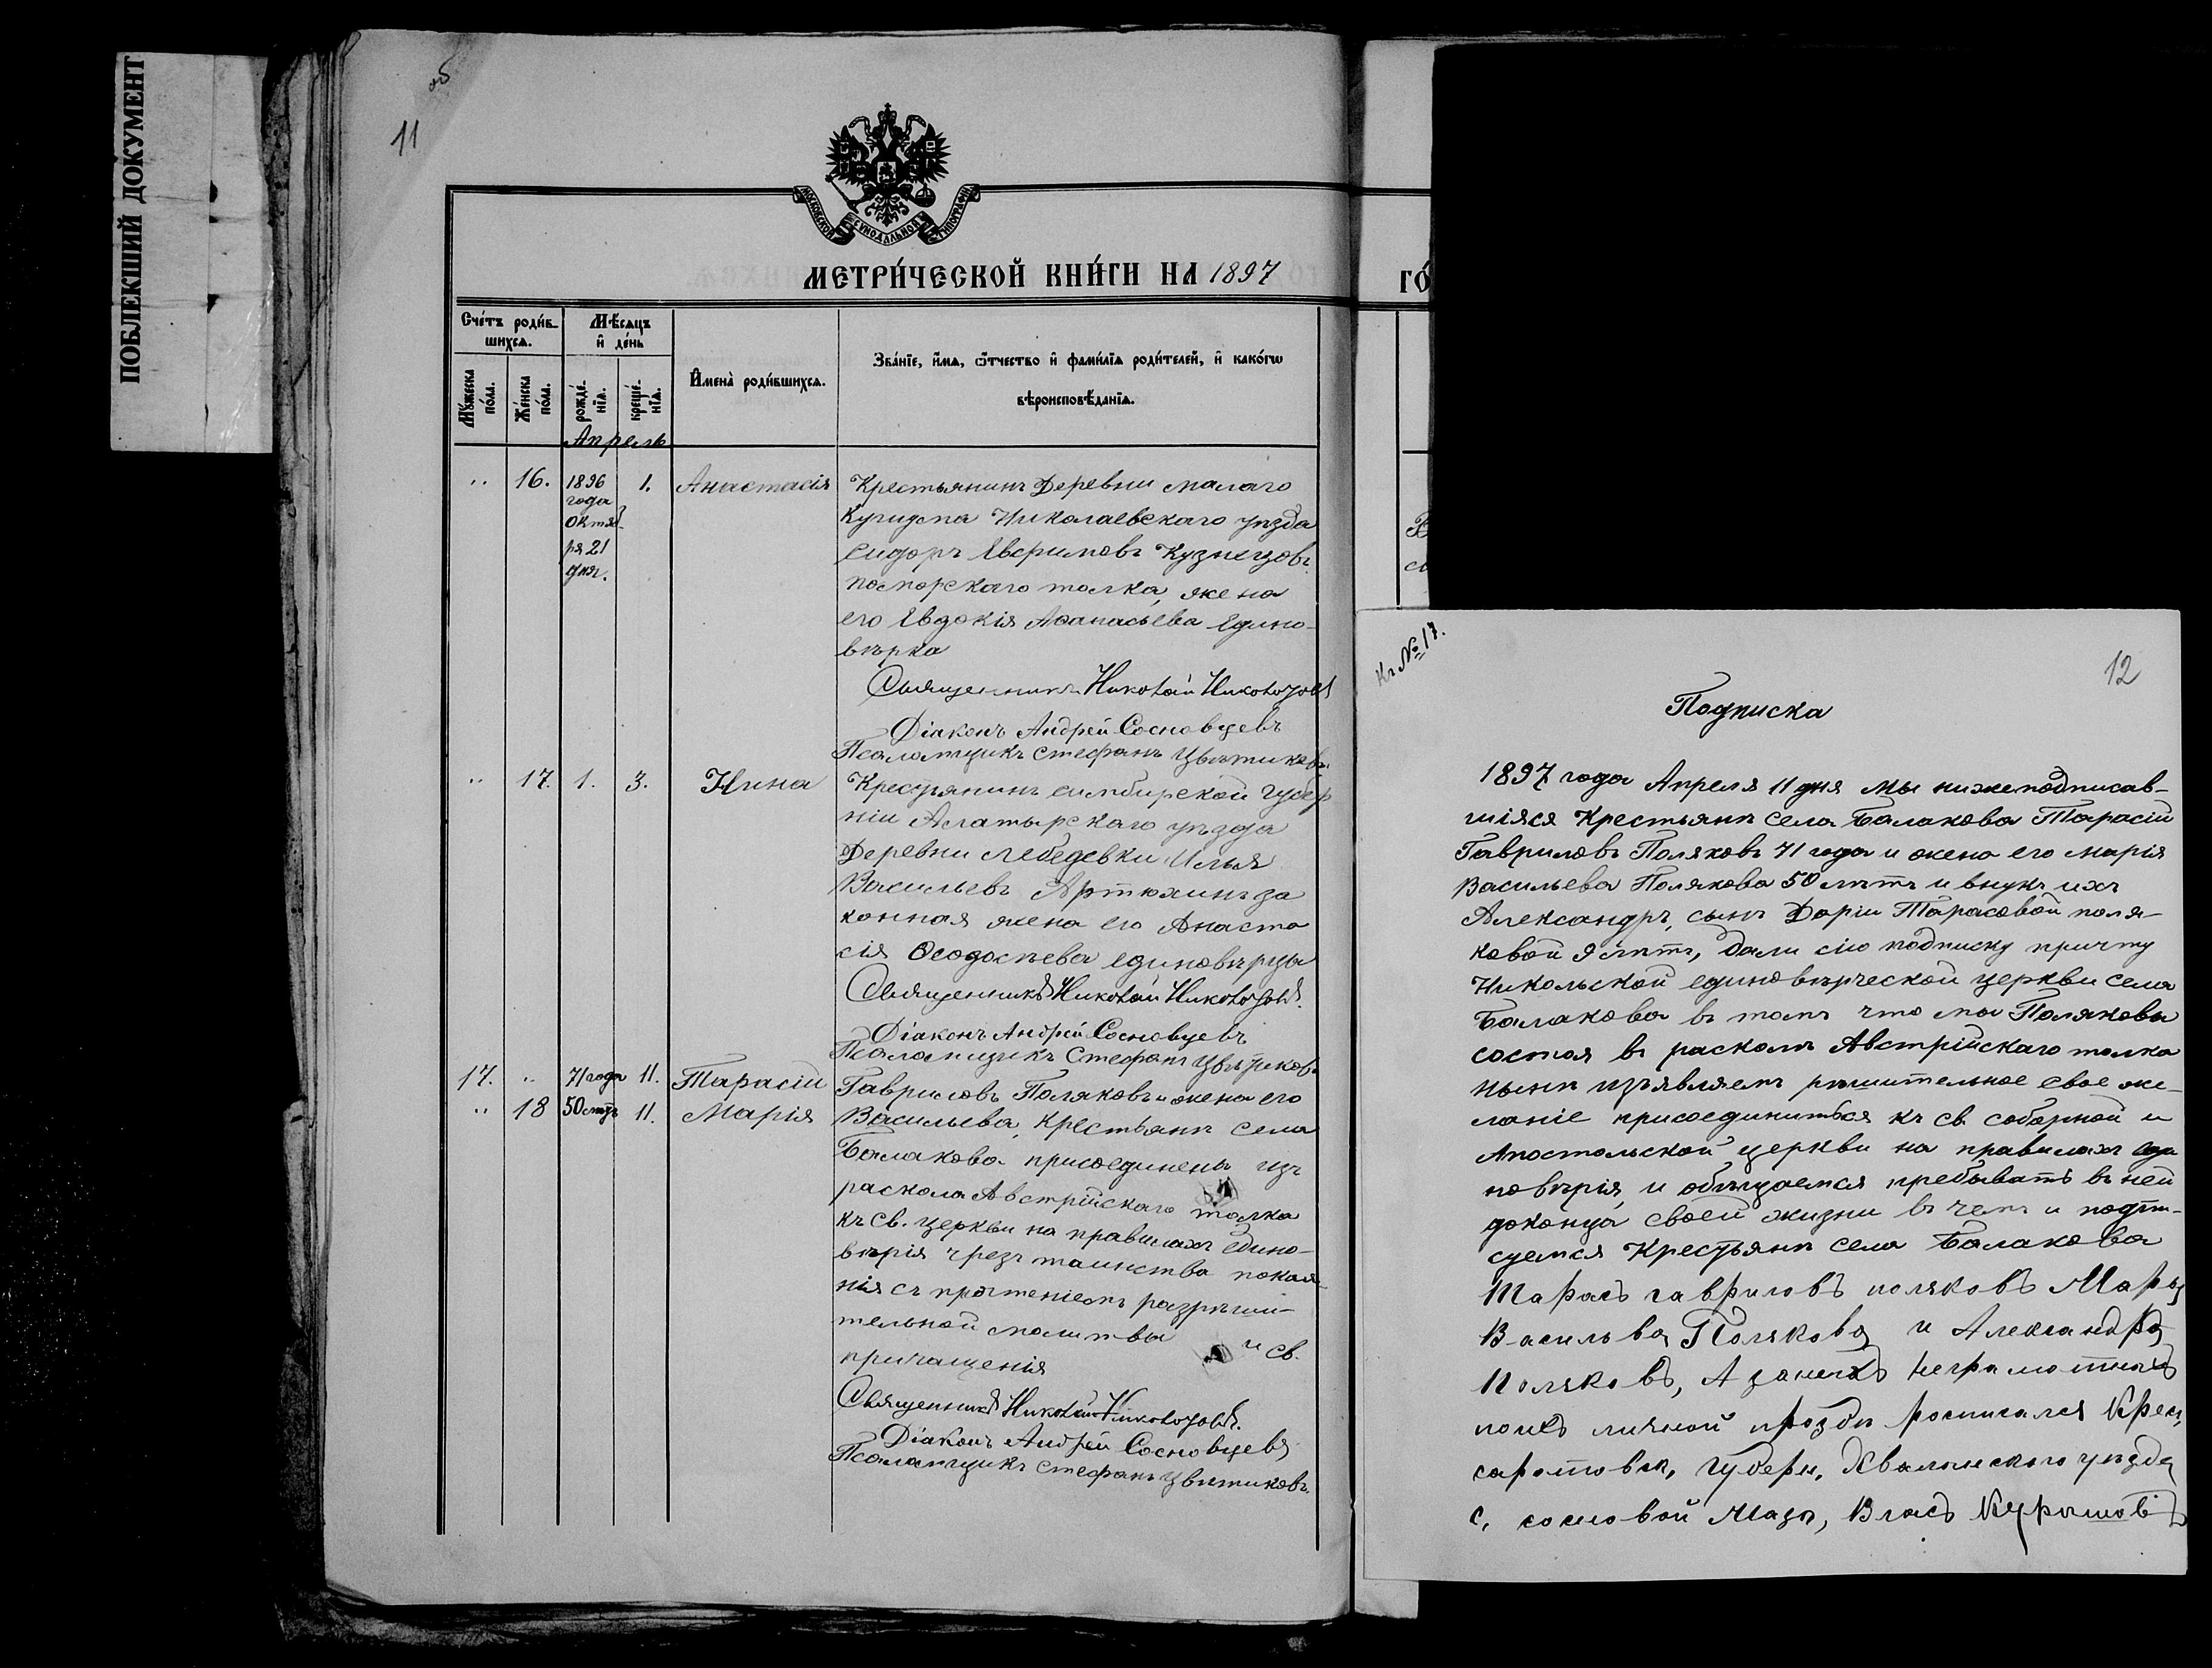 ПОБЛЕКШИЙ ДОКУМЕНТ
11
об
МОСКОВСКОЙ СѴНОДАЛЬНОЙ ТИПОГРАФІИ
МЕТРИ́ЧЕСКОЙ КНИ́ГИ НА 1897
ГО́
Сче́тъ роди́в-
шихсѧ.
Мѣ́сѧцъ
и҆ де́нь
Мꙋ́жеска
по́ла.
Же́нска
по́ла.
рожде́-
нїѧ.
креще́-
нїѧ.
И҆мена̀ роди́вшихсѧ.
Зва́нїе, и҆́мѧ, ѻ҆́тчество и҆ фами́лїѧ роди́телей, и҆ како́гѡ
вѣроисповѣ́данїѧ.
Апрель
" 16. 1896 1. Анастасія Крестьянинъ Деревни малаго
года
Октяб
ря 21
дня.
Кушума Николаевскаго уѣзда
Сидоръ Ефимовъ Кузнецовъ
поморскаго толка, жена
его Евдокія Аѳанасьева Едино-
вѣрка
Священникъ Николай
Діаконъ Андрей Сосновцевъ
Псаломщикъ Стефанъ Цвѣтиковъ
" 17. 1. 3. Нина Крестьянинъ Симбирской Губер
ніи Алатырскаго уѣзда
Деревни Лебедевки Илья
Васильевъ Артюхинъ за
конная жена его Анаста
сія Ѳеодосьева единовѣрцы
Священникъ Николай
Діаконъ Андрей Сосновцевъ
Псаломщикъ Стефанъ Цвѣтиковъ
17. " 71 года 11. Тарасій Гавриловъ Поляковъ и жена его
" 18 50 лѣтъ 11. Марія Васильева, Крестьяне села
Балаково присоединены изъ
раскола Австрійскаго толка
къ св. церкви на правилахъ едино-
вѣрія чрезъ таинства покая-
нія съ прочтеніемъ разрѣши-
тельной молитвы и св.
причащенія
Священникъ Николай
Діаконъ Андрей Сосновцевъ
Псаломщикъ Стефанъ Цвѣтиковъ
Къ № 17.
12
Подписка
1897 года Апреля 11 дня мы нижеподписав-
шіяся Крестьяне села Балакова Тарасій
Гавриловъ Поляковъ 71 года и жена его Марія
Васильева Полякова 50 лѣтъ и внукъ ихъ
Александръ, сынъ Даріи Тарасовой Поля-
ковой 9 лѣтъ, дали сію подписку причту
Никольской единовѣрческой церкви села
Балакова въ томъ что мы Поляковы
состоя въ расколѣ Австрійскаго толка
нынѣ изъявляемъ рѣшительное свое же-
ланіе присоединиться къ св. соборной и
Апостольской церкви на правилахъ еди
новѣрія, и обѣщаемся пребывать въ ней
доконца своей жизни въ чемъ и подпи-
суемся Крестьяне села Балакова
Тарасъ гавриловъ поляковъ Марья
Василъва Полякова и Александръ
Поляковъ, А занихъ неграмотныхъ
поихъ личной прозбѣ росписался Крест,
саратовск, губерн, Хвалынского уѣзда
с, сосновой Мазы, Власъ